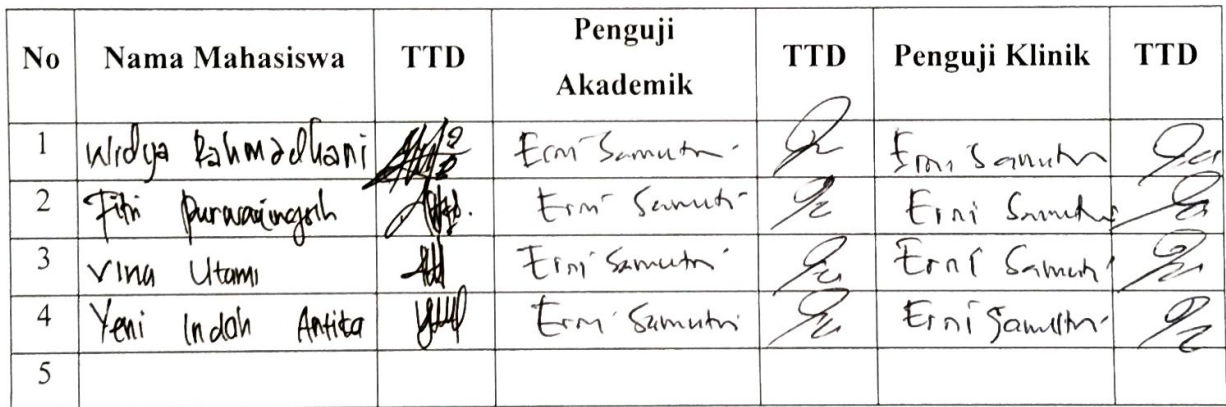 No Nama Mahasiswa TTD Penguji Akademik TTD Penguji Klinik TTD
1 Widya Rahmadhani Erni Samutri Erni Samutri
2 Fitri purwaningsih Erni Samutri Erni Samutri
3 Vina Utami Erni Samutri Erni Samutri
4 Yeni Indah Antika Erni Samutri Erni Samutri
5